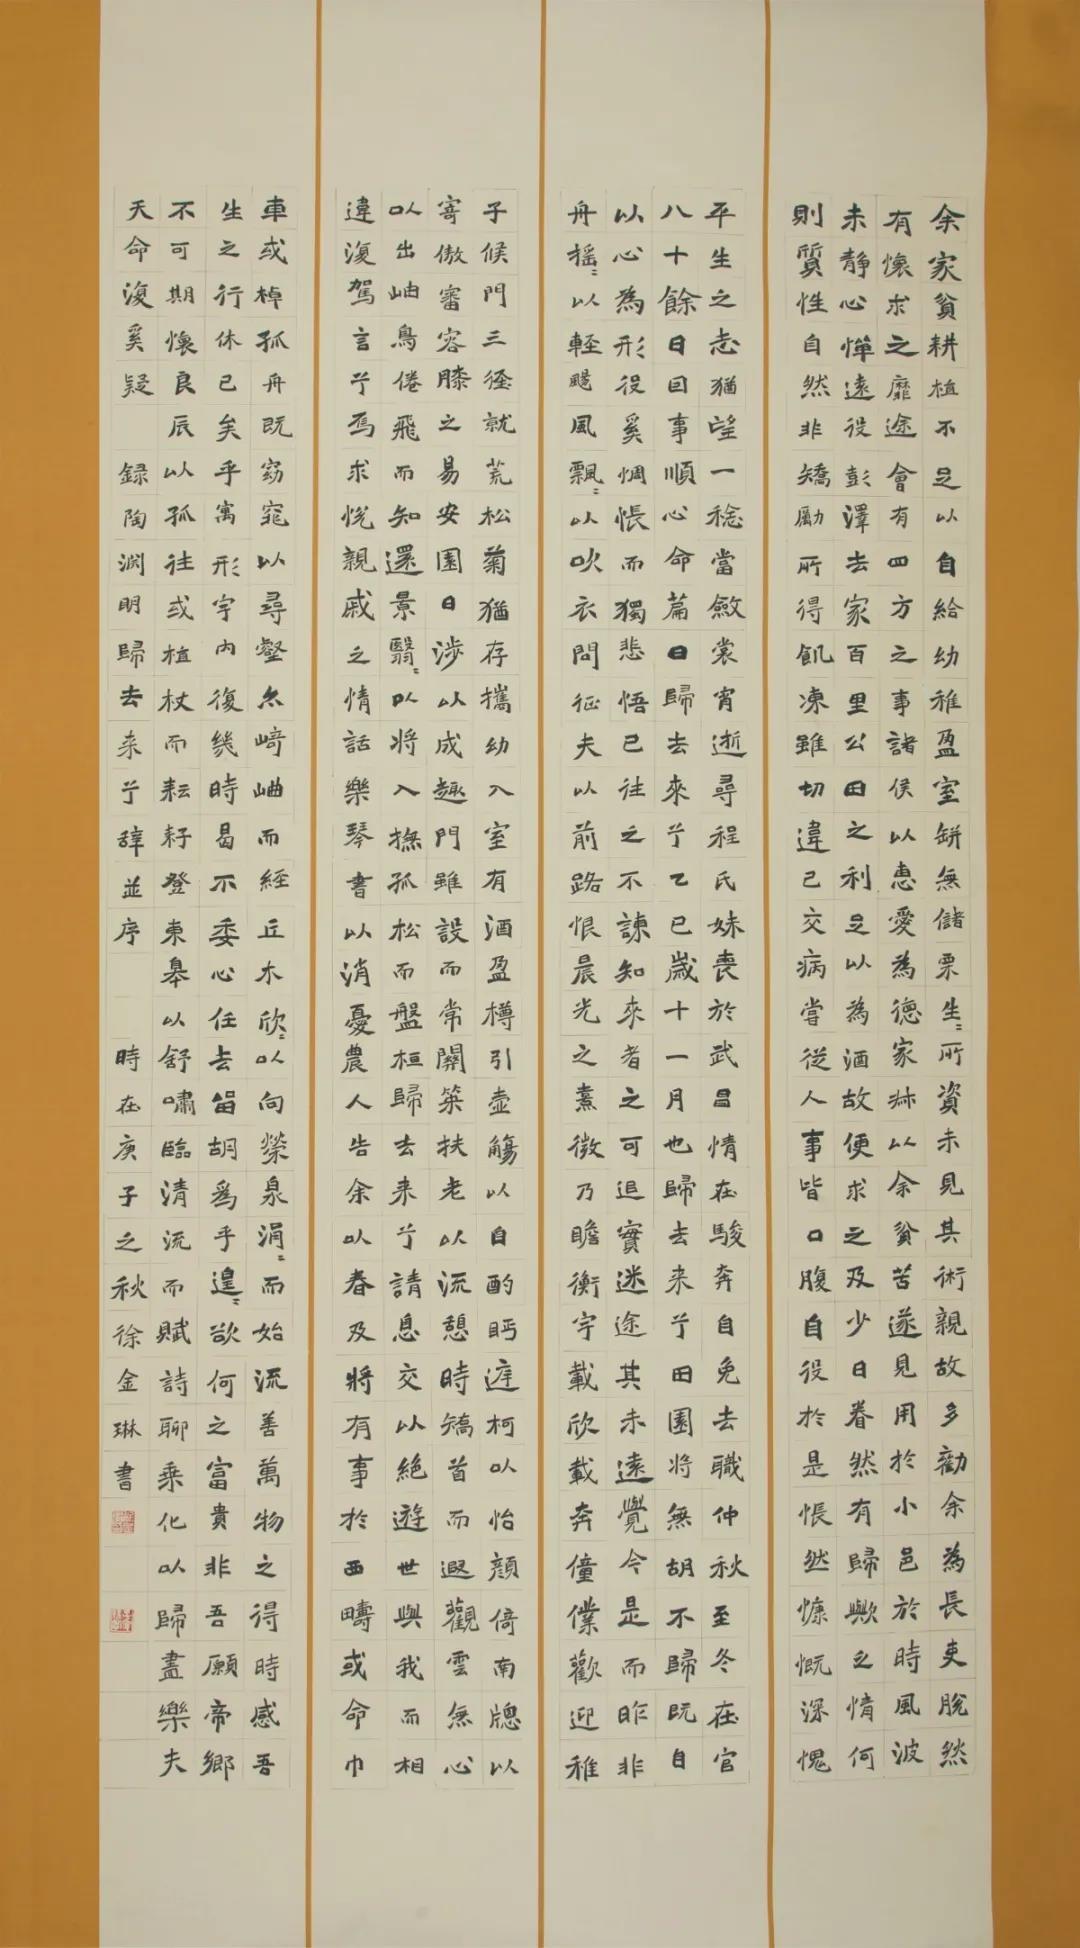 余家貧耕植不足以自給幼稚盈室缾無儲粟生〻所資未見其術親故多勸余為長吏脫然
有懷求之靡途會有四方之事諸侯以惠愛為德家叔以余貧苦遂見用於小邑於時風波
未靜心憚遠役彭澤去家百里公田之利足以為酒故便求之及少日眷然有歸歟之情何
則質性自然非矯勵所得飢凍雖切違己交病嘗從人事皆口腹自役於是悵然慷慨深愧
平生之志猶望一稔當斂裳宵逝尋程氏妹喪於武昌情在駿奔自免去職仲秋至冬在官
八十餘日因事順心命篇曰歸去來兮乙巳歲十一月也歸去来兮田園將無胡不歸既自
以心為形役奚惆悵而獨悲悟已往之不諫知來者之可追實迷途其未遠覺今是而昨非
舟搖〻以輕颺風飄〻以吹衣問征夫以前路恨晨光之熹微乃瞻衡宇載欣載奔僮僕歡迎稚
子候門三徑就荒松菊猶存攜幼入室有酒盈樽引壺觴以自酌眄庭柯以怡顏倚南牕以
寄傲審容膝之易安園日涉以成趣門雖設而常關策扶老以流憩時矯首而遐觀雲無心
以出岫鳥倦飛而知還景翳〻以將入撫孤松而盤桓歸去来兮請息交以絕遊世與我而相
違復駕言兮焉求悅親戚之情話樂琴書以消憂農人告余以春及將有事於西疇或命巾
車或棹孤舟既窈窕以尋壑亦崎岫而經丘木欣〻以向榮泉涓〻而始流善萬物之得時感吾
生之行休已矣乎寓形宇内復幾時曷不委心任去留胡爲乎遑〻欲何之富貴非吾願帝鄉
不可期懷良辰以孤往或植杖而耘耔登東皋以舒嘯臨清流而賦詩聊乘化以歸盡樂夫
天命復奚疑 録陶渊明歸去来兮辞並序 時在庚子之秋徐金琳書